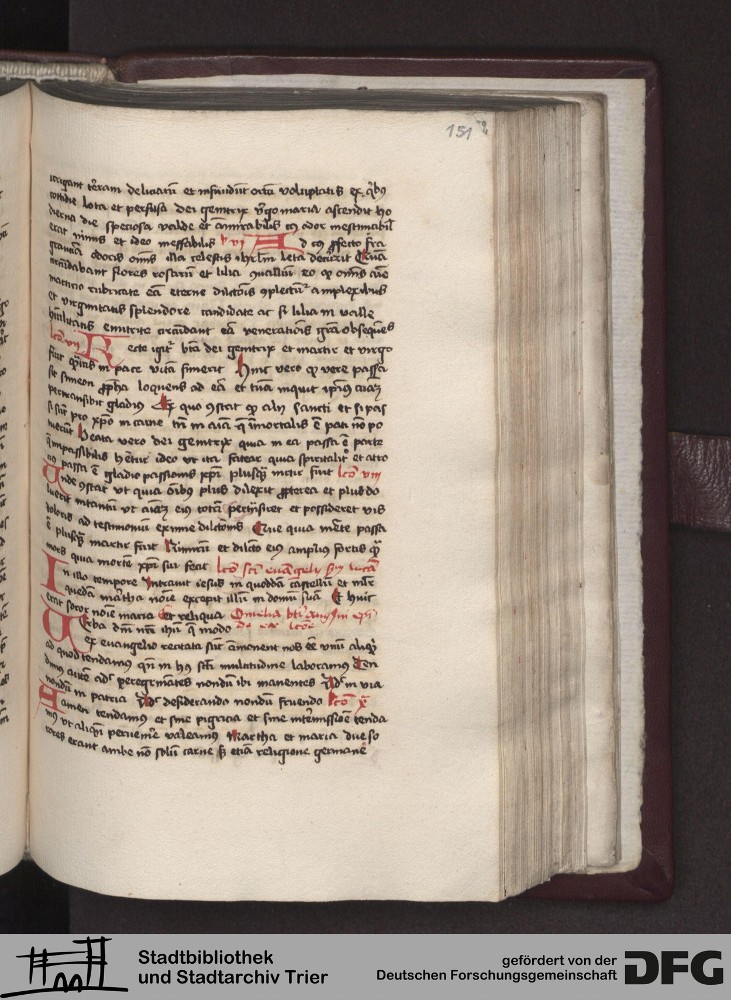 151
irrigant terram deliciarum et infundunt ortum voluptatis ex quibus
cottidie lota et perfusa dei genitrix virgo maria ascendit ho
dierna die speciosa valde et amirabilis cuius odor inestimabil
erat nimis et ideo ineffabilis l vi Ad cuius profecto fra
grantiam odoris omnis illa celestis iherusalem leta decurrit Quam
circumdabant flores rosarum et lilia
martirio rubricate eam eterne dilectionis amplexibus
et virginitatis splendore candidate ac si lilia in valle
humilitatis enutrite circumdant eam venerationis gratia obsequentes
lectio vii Recte igitur beata dei genitrix et martir et virgo
fuit quamvis in pace vitam finierit Hinc vero quod vere passa
sit simeon propheta loquens ad eam et tuam inquit ipsius animam
pertransibit gladius Ex quo constat quod alii sancti et si pas
si sunt pro christo in carne tamen in anima que immortalis est pati non po
tuerunt Beata vero dei genitrix quia in ea passa est parte
que impassibilis habetur ideo ut ita fatear quia spiritaliter et
passa est gladio passionis christi plusquam martir fuit lectio viii
Unde constat ut quia omnibus plus dilexit propterea et plus do
luerit intantum ut animam eius totam pertransiret et possideret vis
doloris ad testimonium eximie dilectionis Que quia mente passa
est plusquam martir fuit Nimirum et dilectio eius amplius fortis quam
mors quia mortem christi suam fecit lectio sancti euangelii secundum lucam
In illo tempore Intravit iesus in quoddam castellum et mulier
quedam martha nomine excepit illum in domum suam Et huic
erat soror nomine maria Et reliqua Omelia beati augustini episcopi
Verba domini nostri ihesu christi que modo
ex euangelio recitata sunt amonent nos esse unum aliquid
ad quod tendamus quando in huius seculi multitudine laboramus Ten
dimus autem adhuc peregrinantes nondum ibi manentes adhuc in via
nondum in patria adhuc desiderando nondum fruendo lectio x
Tamen tendamus et sine pigricia et sine intermissione tenda
mus ut aliquando pervenire valeamus Martha et maria due so
rores erant ambe non solum carne sed etiam religione germane
Stadtbibliothek
und Stadtarchiv Trier
gefördert von der
Deutschen Forschungsgemeinschaft
DFG